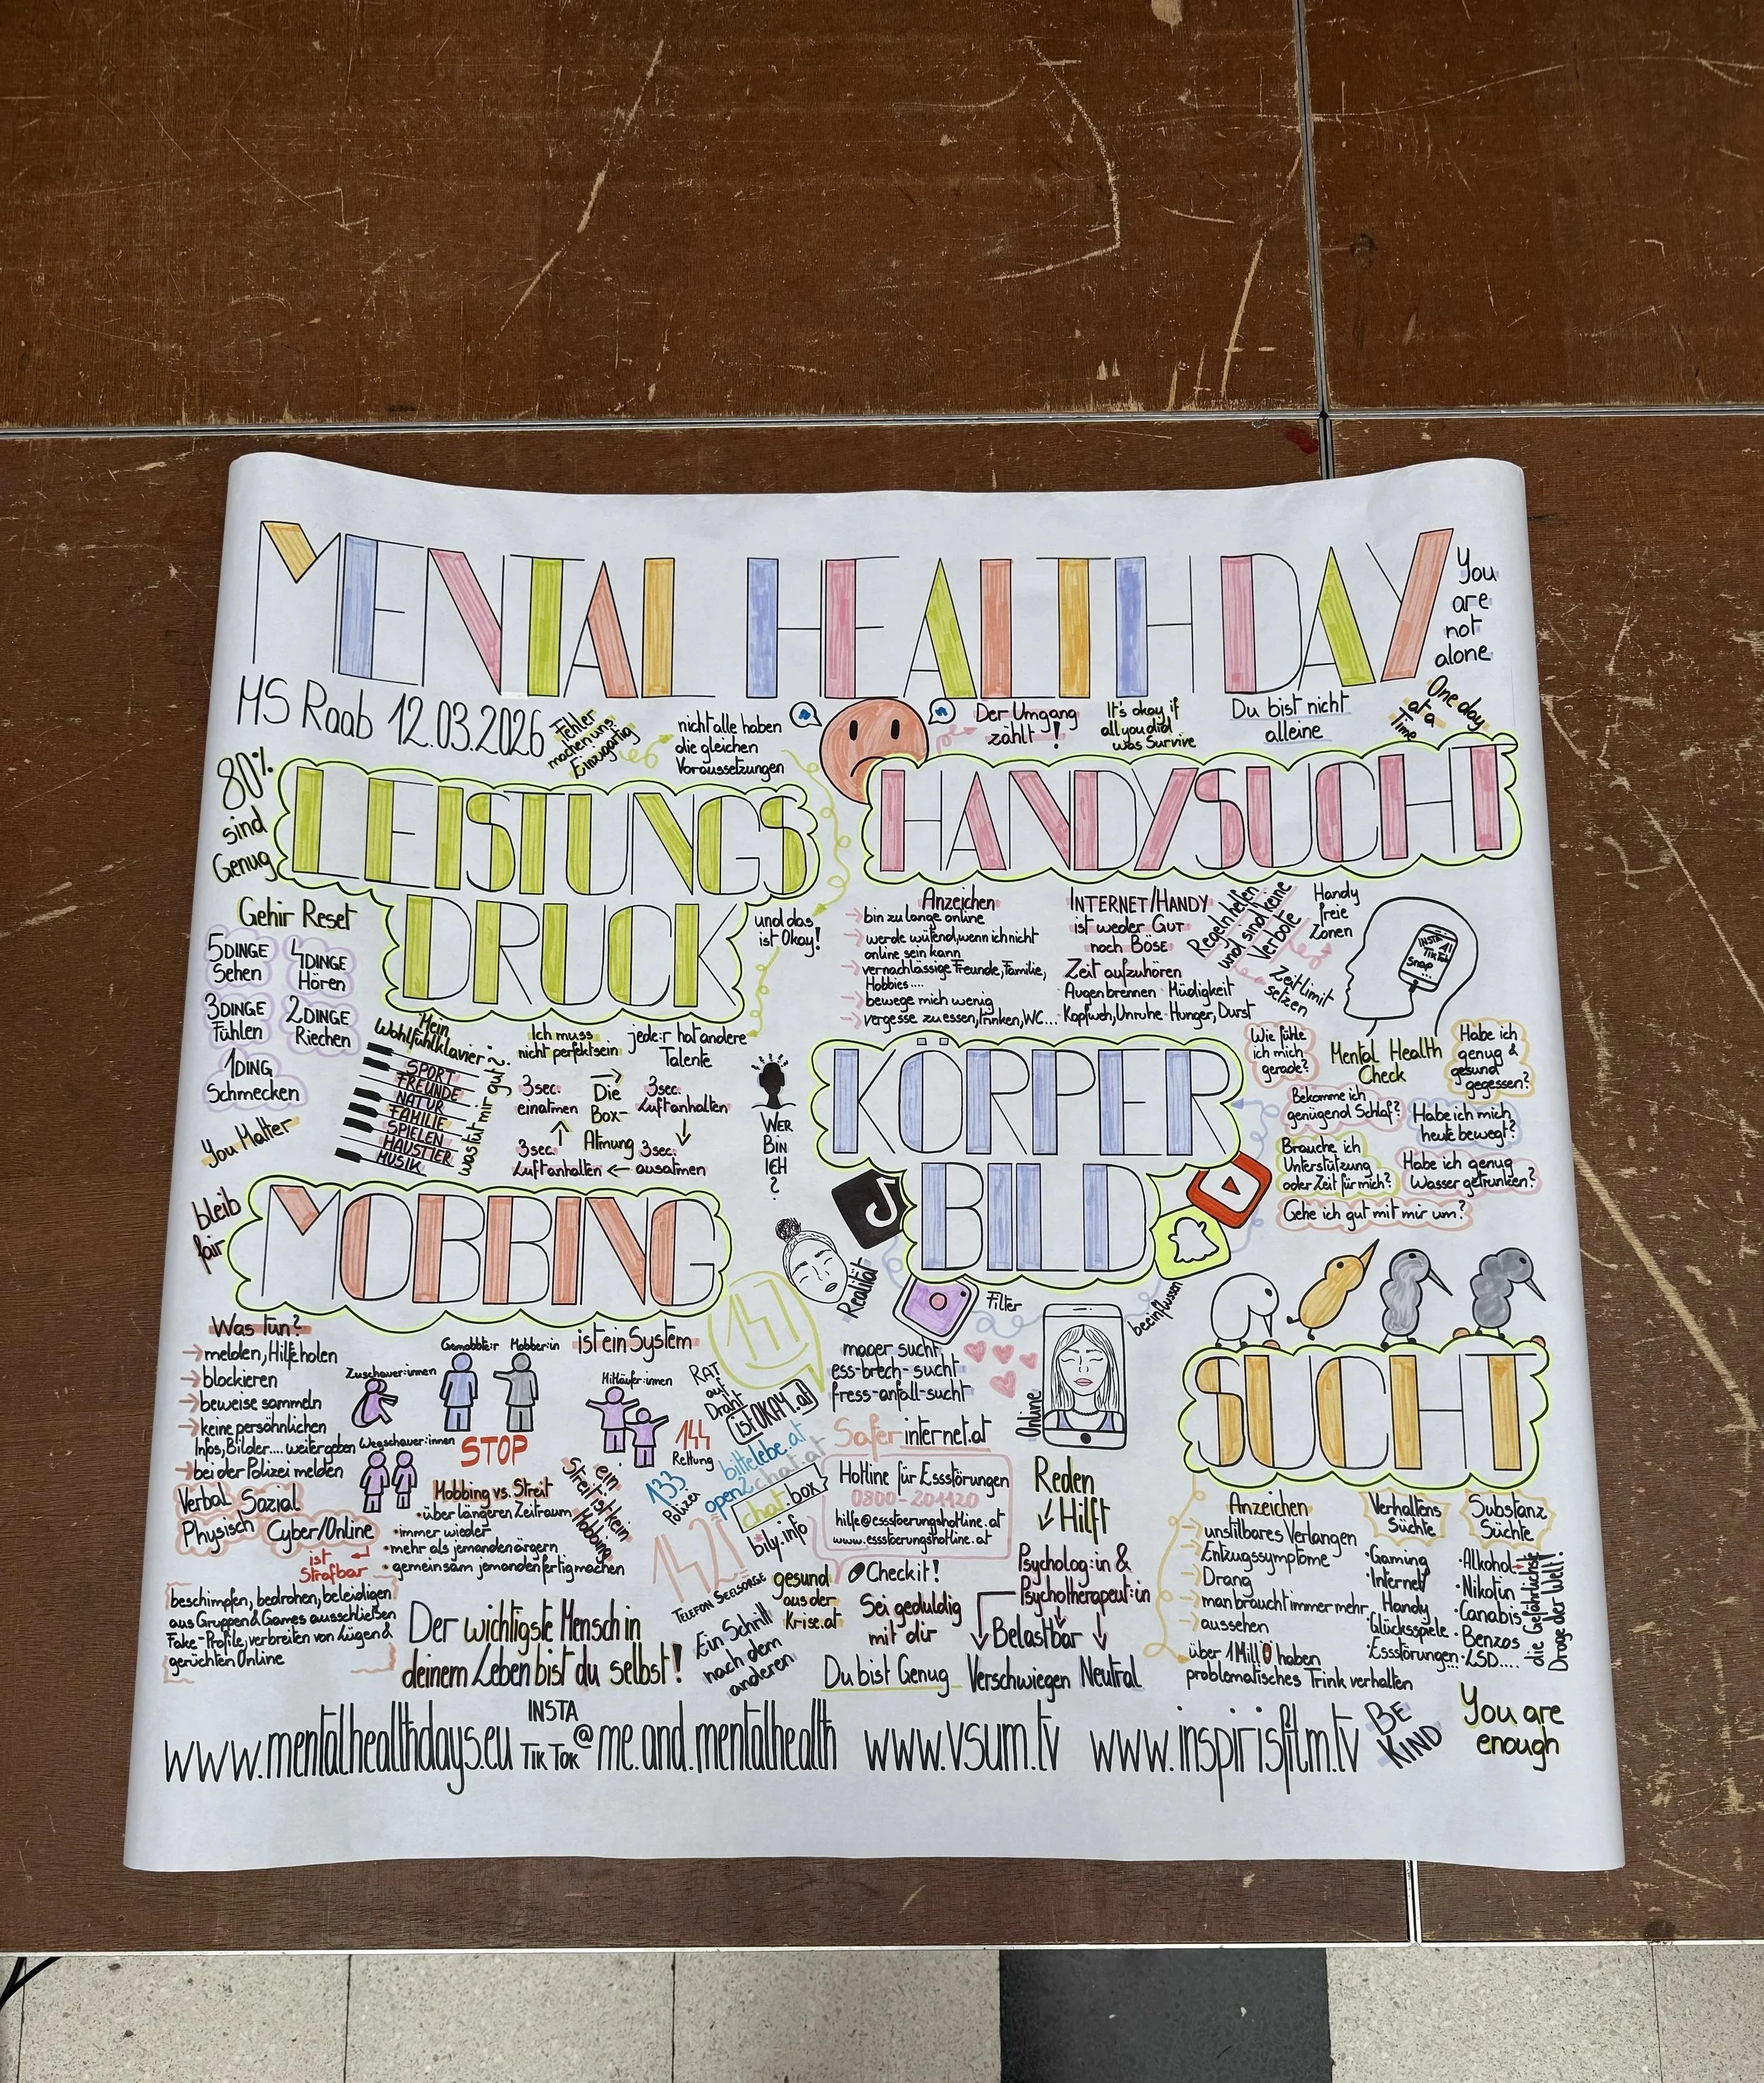 MENTAL HEALTH DAY
You
are
not
alone
MS Raab 12.03.2026
Fehler
machen uns
Einzigartig
nicht alle haben
die gleichen
Voraussetzungen
Der Umgang
zählt!
It's okay if
all you did
was Survive
Du bist nicht
alleine
One day
at a
Time
80%
sind
Genug
LEISTUNGS
DRUCK
und das
ist Okay!
Gehir Reset
5 DINGE
Sehen
4 DINGE
Hören
3 DINGE
Fühlen
2 DINGE
Riechen
1 DING
Schmecken
You Matter
Mein
Wohlfühlklavier
SPORT
FREUNDE
NATUR
FAMILIE
SPIELEN
HAUSTIER
MUSIK
was tut mir gut?
Ich muss
nicht perfekt sein
jede:r hat andere
Talente
3sec.
einatmen
Die
Box-
Atmung
3sec.
Luft anhalten
3sec.
Luft anhalten
3sec.
ausatmen
WER
BIN
ICH
?
HANDYSUCHT
Anzeichen
bin zu lange online
werde wütend, wenn ich nicht
online sein kann
vernachlässige Freunde, Familie,
Hobbies....
bewege mich wenig
vergesse zu essen, trinken, WC...
INTERNET/HANDY
ist weder GUT
noch BÖSE
Zeit aufzuhören
Augenbrennen · Müdigkeit
Kopfweh, Unruhe · Hunger, Durst
Regeln helfen
und sind keine
Verbote
Handy
freie
Zonen
Zeitlimit
setzen
INSTA
TikTok
Snap
...
KÖRPER
BILD
Wie fühle
ich mich
gerade?
Mental Health
Check
Habe ich
genug &
gesund
gegessen?
Bekomme ich
genügend Schlaf?
Habe ich mich
heute bewegt?
Brauche ich
Unterstützung
oder Zeit für mich?
Habe ich genug
Wasser getrunken?
Gehe ich gut mit mir um?
Realität
Filter
beeinflussen
Online
mager sucht
ess-brech-sucht
fress-anfall-sucht
Safer internet.at
Hotline für Essstörungen
0800-201120
hilfe@essstoerungshotline.at
www.essstoerungshotline.at
Checkit!
Sei geduldig
mit dir
Du bist Genug
Reden
Hilft
Psycholog:in &
Psychotherapeut:in
Belastbar
Verschwiegen
Neutral
bleib
fair
MOBBING
Was tun?
melden, Hilfe holen
blockieren
beweise sammeln
keine persönlichen
Infos, Bilder.... weitergeben
bei der Polizei melden
Verbal
Sozial
Physisch
Cyber/Online
ist
Strafbar
beschimpfen, bedrohen, beleidigen
aus Gruppen & Games ausschließen
Fake-Profile, verbreiten von Lügen &
gerüchten Online
Gemobbte:r
Mobber:in
ist ein System
Zuschauer:innen
Mitläufer:innen
Wegschauer:innen
STOP
Mobbing vs. Streit
über längeren Zeitraum
immer wieder
mehr als jemanden ärgern
gemeinsam jemanden fertig machen
ein
Streit ist kein
Mobbing
Der wichtigste Mensch in
deinem Leben bist du selbst!
147
RAT
auf
Draht
istOKAY.at
144
Rettung
133
Polizei
bittelebe.at
open2chat.at
chat.box
bily.info
142!
TELEFON SEELSORGE
gesund
aus der
Krise.at
Ein Schritt
nach dem
anderen
SUCHT
Anzeichen
unstillbares Verlangen
Entzugssymptome
Drang
man braucht immer mehr
aussehen
über 1 Mill Ö haben
problematisches Trink verhalten
Verhaltens
Süchte
·Gaming
·Internet
·Handy
·Glücksspiele
·Essstörungen
Substanz
Süchte
·Alkohol
·Nikotin
·Canabis
·Benzos
·LSD....
die Gefährlichste
Droge der Welt!
www.mentalhealthdays.eu
INSTA
TIK TOK
@me.and.mentalhealth
www.vsum.tv
www.inspirisfilm.tv
BE
KIND
You are
enough